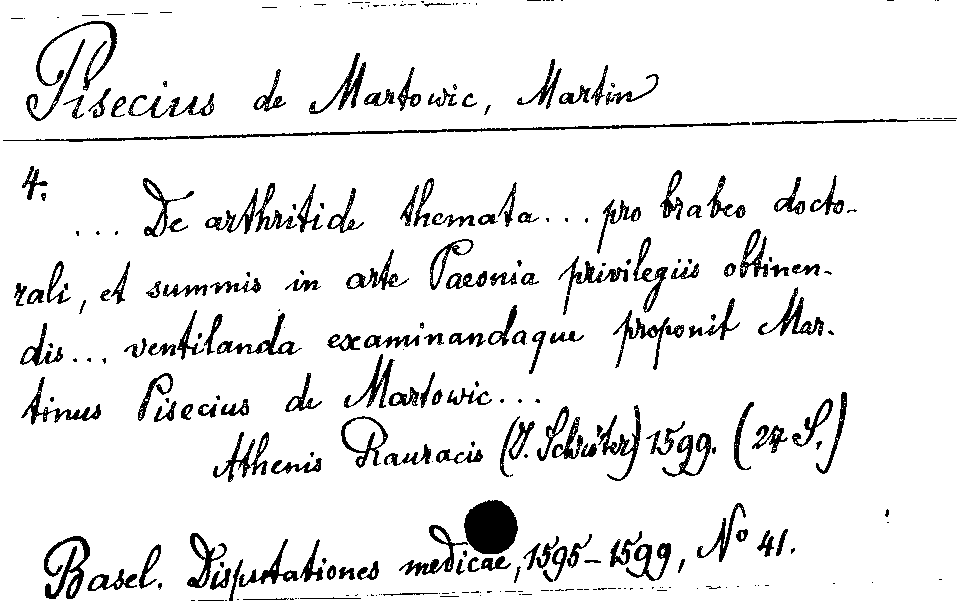 Pisecius de Martowic, Martin
4.
... De arthritide themata... pro brabeo docto-
rali, et summis in arte Paeonia privilegiis obtinen-
dis... ventilanda examinandaque proponit Mar-
tinus Pisecius de Martowic...
Athenis Rauracis (J. Schröter) 1599. (27 S.)
Basel. Disputationes medicae, 1595-1599, No 41.